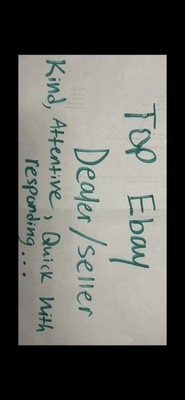 Top Ebay
Dealer/seller
Kind, Attentive, Quick with
responding...